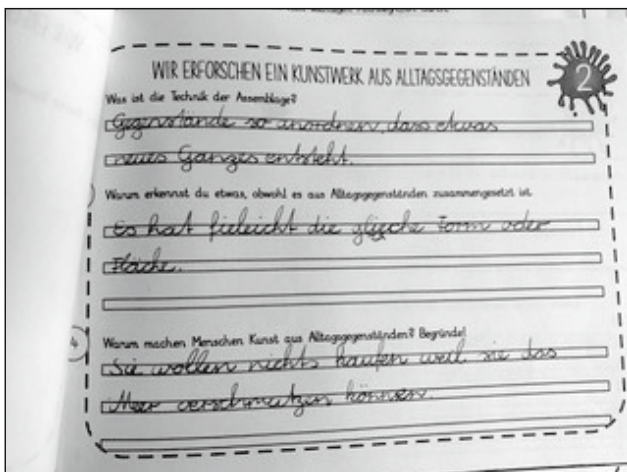 WIR ERFORSCHEN EIN KUNSTWERK AUS ALLTAGSGEGENSTÄNDEN
2
Was ist die Technik der Assemblage?
Gegenstände so anordnen, dass etwas
neues Ganzes entsteht.
Warum erkennst du etwas, obwohl es aus Alltagsgegenständen zusammengesetzt ist
Es hat fieleicht die gleiche Form oder
Fläche.
4
Warum machen Menschen Kunst aus Alltagsgegenständen? Begründe!
Sie wollen nichts kaufen weil sie das
Meer verschmutzen können.